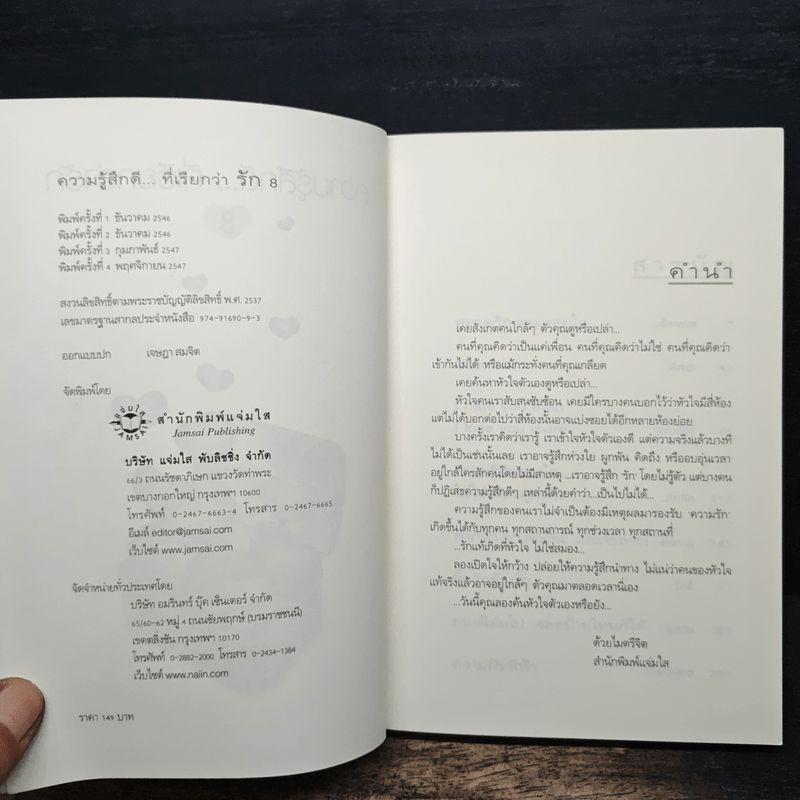 ความรู้สึกดี... ที่เรียกว่า รัก 8
พิมพ์ครั้งที่ 1 ธันวาคม 2546
พิมพ์ครั้งที่ 2 ธันวาคม 2546
พิมพ์ครั้งที่ 3 กุมภาพันธ์ 2547
พิมพ์ครั้งที่ 4 พฤศจิกายน 2547
สงวนลิขสิทธิ์ตามพระราชบัญญัติลิขสิทธิ์ พ.ศ. 2537
เลขมาตรฐานสากลประจำหนังสือ 974-91690-9-3
ออกแบบปก เจษฎา สมจิต
จัดพิมพ์โดย
แจ่มใส
JAMSAI
สำนักพิมพ์แจ่มใส
Jamsai Publishing
บริษัท แจ่มใส พับลิชชิ่ง จำกัด
66/3 ถนนรัชดาภิเษก แขวงวัดท่าพระ
เขตบางกอกใหญ่ กรุงเทพฯ 10600
โทรศัพท์ 0-2467-6663-4 โทรสาร 0-2467-6665
อีเมล์ editor@jamsai.com
เว็บไซต์ www.jamsai.com
จัดจำหน่ายทั่วประเทศโดย
บริษัท อมรินทร์ บุ๊ค เซ็นเตอร์ จำกัด
65/60-62 หมู่ 4 ถนนชัยพฤกษ์ (บรมราชชนนี)
เขตตลิ่งชัน กรุงเทพฯ 10170
โทรศัพท์ 0-2882-2000 โทรสาร 0-2434-1384
เว็บไซต์ www.naiin.com
ราคา 149 บาท
คำนำ
เคยสังเกตคนใกล้ๆ ตัวคุณดูหรือเปล่า...
คนที่คุณคิดว่าเป็นแค่เพื่อน คนที่คุณคิดว่าไม่ใช่ คนที่คุณคิดว่า
เข้ากันไม่ได้ หรือแม้กระทั่งคนที่คุณเกลียด
เคยค้นหาหัวใจตัวเองดูหรือเปล่า...
หัวใจคนเราสับสนซับซ้อน เคยมีใครบางคนบอกไว้ว่าหัวใจมีสี่ห้อง
แต่ไม่ได้บอกต่อไปว่าสี่ห้องนั้นอาจแบ่งซอยได้อีกหลายห้องย่อย
บางครั้งเราคิดว่าเรารู้ เราเข้าใจหัวใจตัวเองดี แต่ความจริงแล้วบางที
ไม่ได้เป็นเช่นนั้นเลย เราอาจรู้สึกห่วงใย ผูกพัน คิดถึง หรืออบอุ่นเวลา
อยู่ใกล้ใครสักคนโดยไม่มีสาเหตุ ...เราอาจรู้สึก 'รัก' โดยไม่รู้ตัว แต่บางคน
ก็ปฏิเสธความรู้สึกดีๆ เหล่านี้ด้วยคำว่า...เป็นไปไม่ได้...
ความรู้สึกของคนเราไม่จำเป็นต้องมีเหตุผลมารองรับ 'ความรัก'
เกิดขึ้นได้กับทุกคน ทุกสถานการณ์ ทุกช่วงเวลา ทุกสถานที่
...รักแท้เกิดที่หัวใจ ไม่ใช่สมอง...
ลองเปิดใจให้กว้าง ปล่อยให้ความรู้สึกนำทาง ไม่แน่ว่าคนของหัวใจ
แท้จริงแล้วอาจอยู่ใกล้ๆ ตัวคุณมาตลอดเวลานี่เอง
...วันนี้คุณลองค้นหัวใจตัวเองหรือยัง...
ด้วยไมตรีจิต
สำนักพิมพ์แจ่มใส